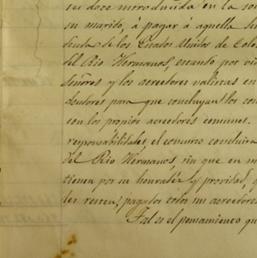 su doce introducida en la so
su marido, á pagar á aquella su
de los Estados Unidos de Colo
del Rio Hermanos, cuando por vi
señores y los acreedores
deudores para que concluyan los con
con los propios acreedores comunes.
responsabilidades, el concurso concluirá
del Rio Hermanos, sin que en m
tienen por su honradez y probidad, q
les resten; pagarlos todos sus acreedores
Tal es el pensamiento qu